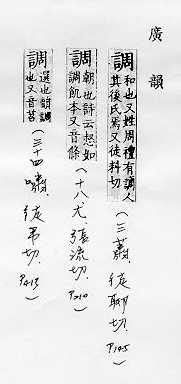 廣韻
調 和也又姓周禮有調人
其後氏焉又徒料切
(三蕭. 徒聊切. P.145)
調 朝也詩云惄如
調飢本又音條
(十八尤. 張流切. P.210)
調 選也韻調
也又音苕
(三十四嘯. 徒弔切. P.413)